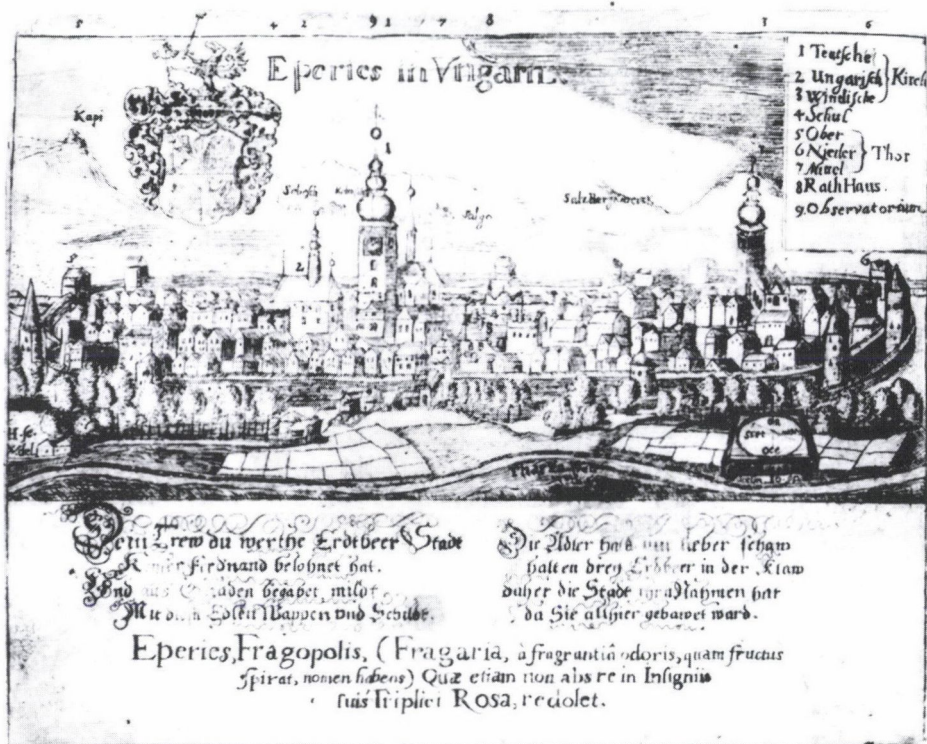 5 4 2 9 1 7 8 3 6
Eperies in Vngarn.
1 Teutsche
2 Ungarisch Kirch
3 Windische
4 Schul
5 Ober
6 Nieder Thor
7 Mittel
8 RathHaus.
9. Observatorium
Kapi
1
2
3
5
6
Dein Trew du werthe Erdtbeer Stadt
Ferdnand belohnet hat.
Und aus Gnaden begabet mildt
Mit Edlen Wappen und Schildt.
Die Adler
halten drey Erdtbeer in der Klaw
daher die Stadt Nahmen hat
da Sie allhier gebawet ward.
Eperies, Fragopolis, (Fragaria, à fragrantiâ odoris, quam fructus
spirat, nomen habens) Quæ etiam non abs re in Insigniis
suis Triplici Rosa, redolet.